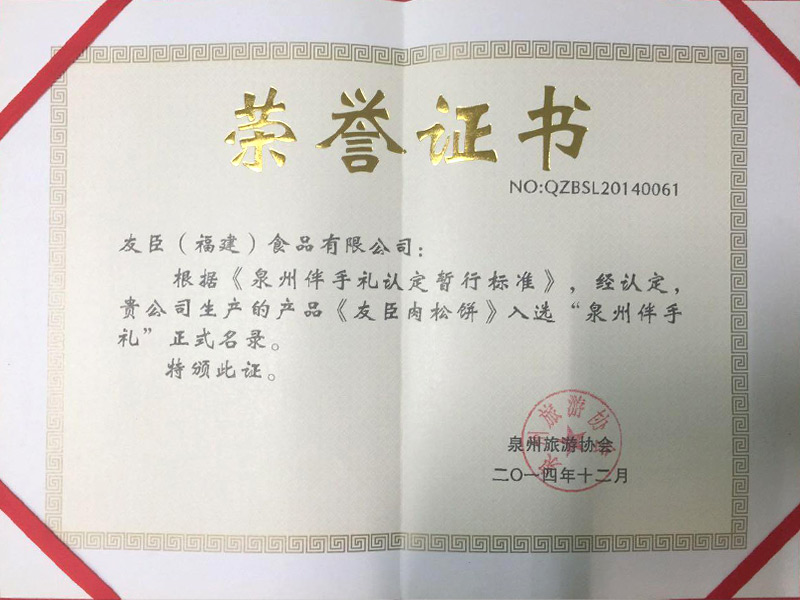 荣誉证书
NO:QZBSL20140061
友臣（福建）食品有限公司：
根据《泉州伴手礼认定暂行标准》，经认定，
贵公司生产的产品《友臣肉松饼》入选“泉州伴手
礼”正式名录。
特颁此证。
泉州旅游协会
泉州旅游协会
二〇一四年十二月